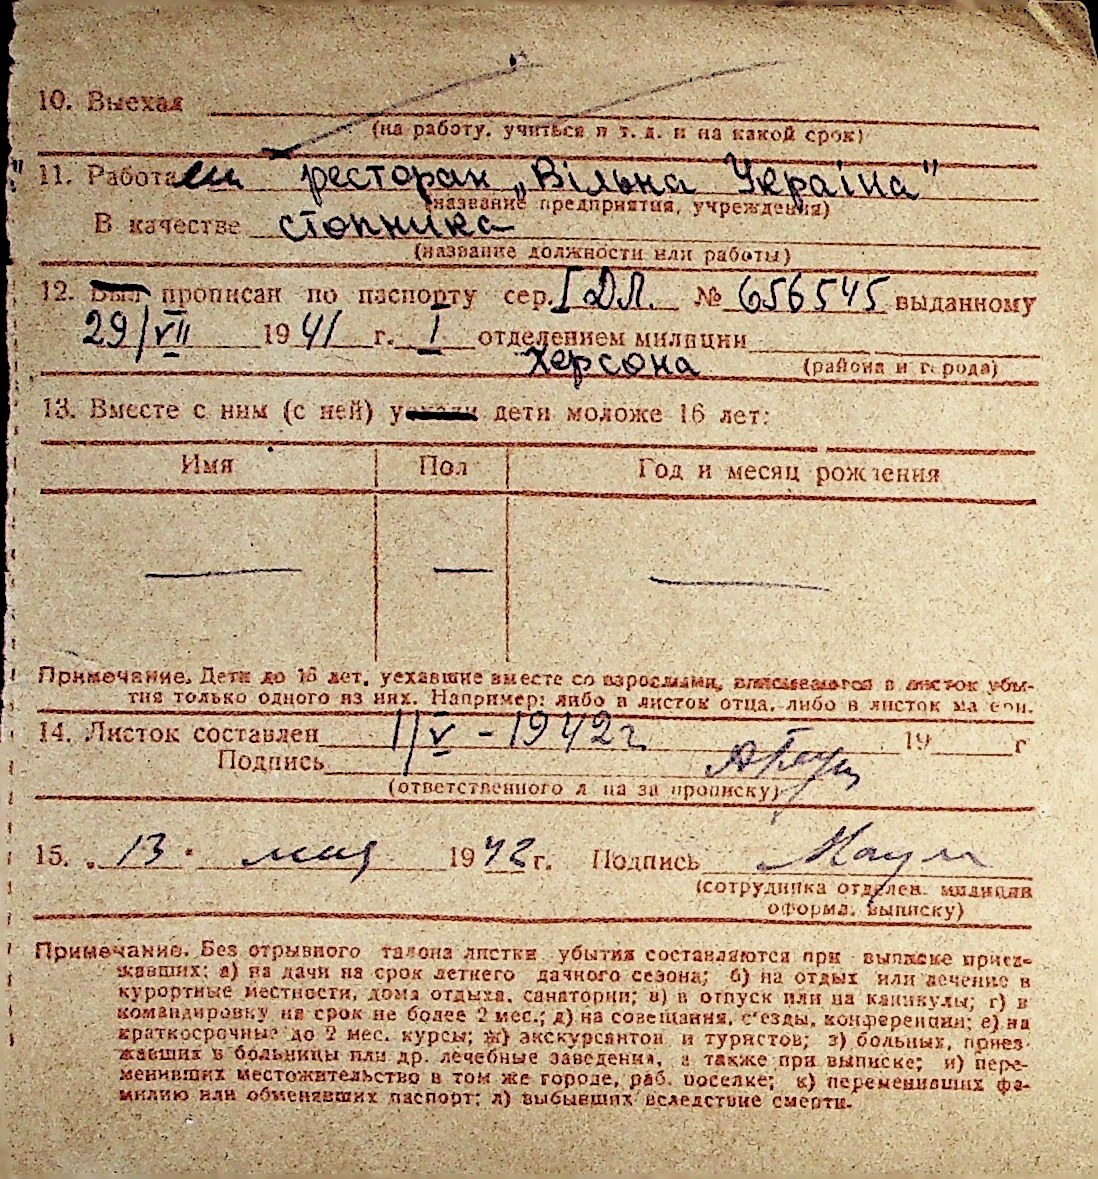 10. Выехал
(на работу, учиться и т. д. и на какой срок)
11. Работа ресторан „Вільна Україна"
(название предприятия, учреждения)
В качестве стопника
(название должности или работы)
12. Был прописан по паспорту сер. I ДЛ. № 656545 выданному
29/VII 1941 г. I отделением милиции
Херсона (района и города)
13. Вместе с ним (с ней) дети моложе 16 лет:
Имя Пол Год и месяц рождения
— — —
Примечание. Дети до 16 лет, уехавшие вместе со взрослыми, вписываются в листок убы-
тия только одного из них. Например: либо в листок отца, либо в листок матери.
14. Листок составлен 11/V - 1942 г. 19 г
Подпись
(ответственного лица за прописку)
15. „13" мая 1942 г. Подпись
(сотрудника отделен. милиции
оформ. выписку)
Примечание. Без отрывного талона листки убытия составляются при выписке приез-
жавших: а) на дачи на срок летнего дачного сезона; б) на отдых или лечение в
курортные местности, дома отдыха, санатории; в) в отпуск или на каникулы; г) в
командировку на срок не более 2 мес.; д) на совещания, съезды, конференции; е) на
краткосрочные до 2 мес. курсы; ж) экскурсантов и туристов; з) больных, приез-
жавших в больницы или др. лечебные заведения, а также при выписке; и) пере-
менивших местожительство в том же городе, раб. поселке; к) переменивших фа-
милию или обменявших паспорт; л) выбывших вследствие смерти.